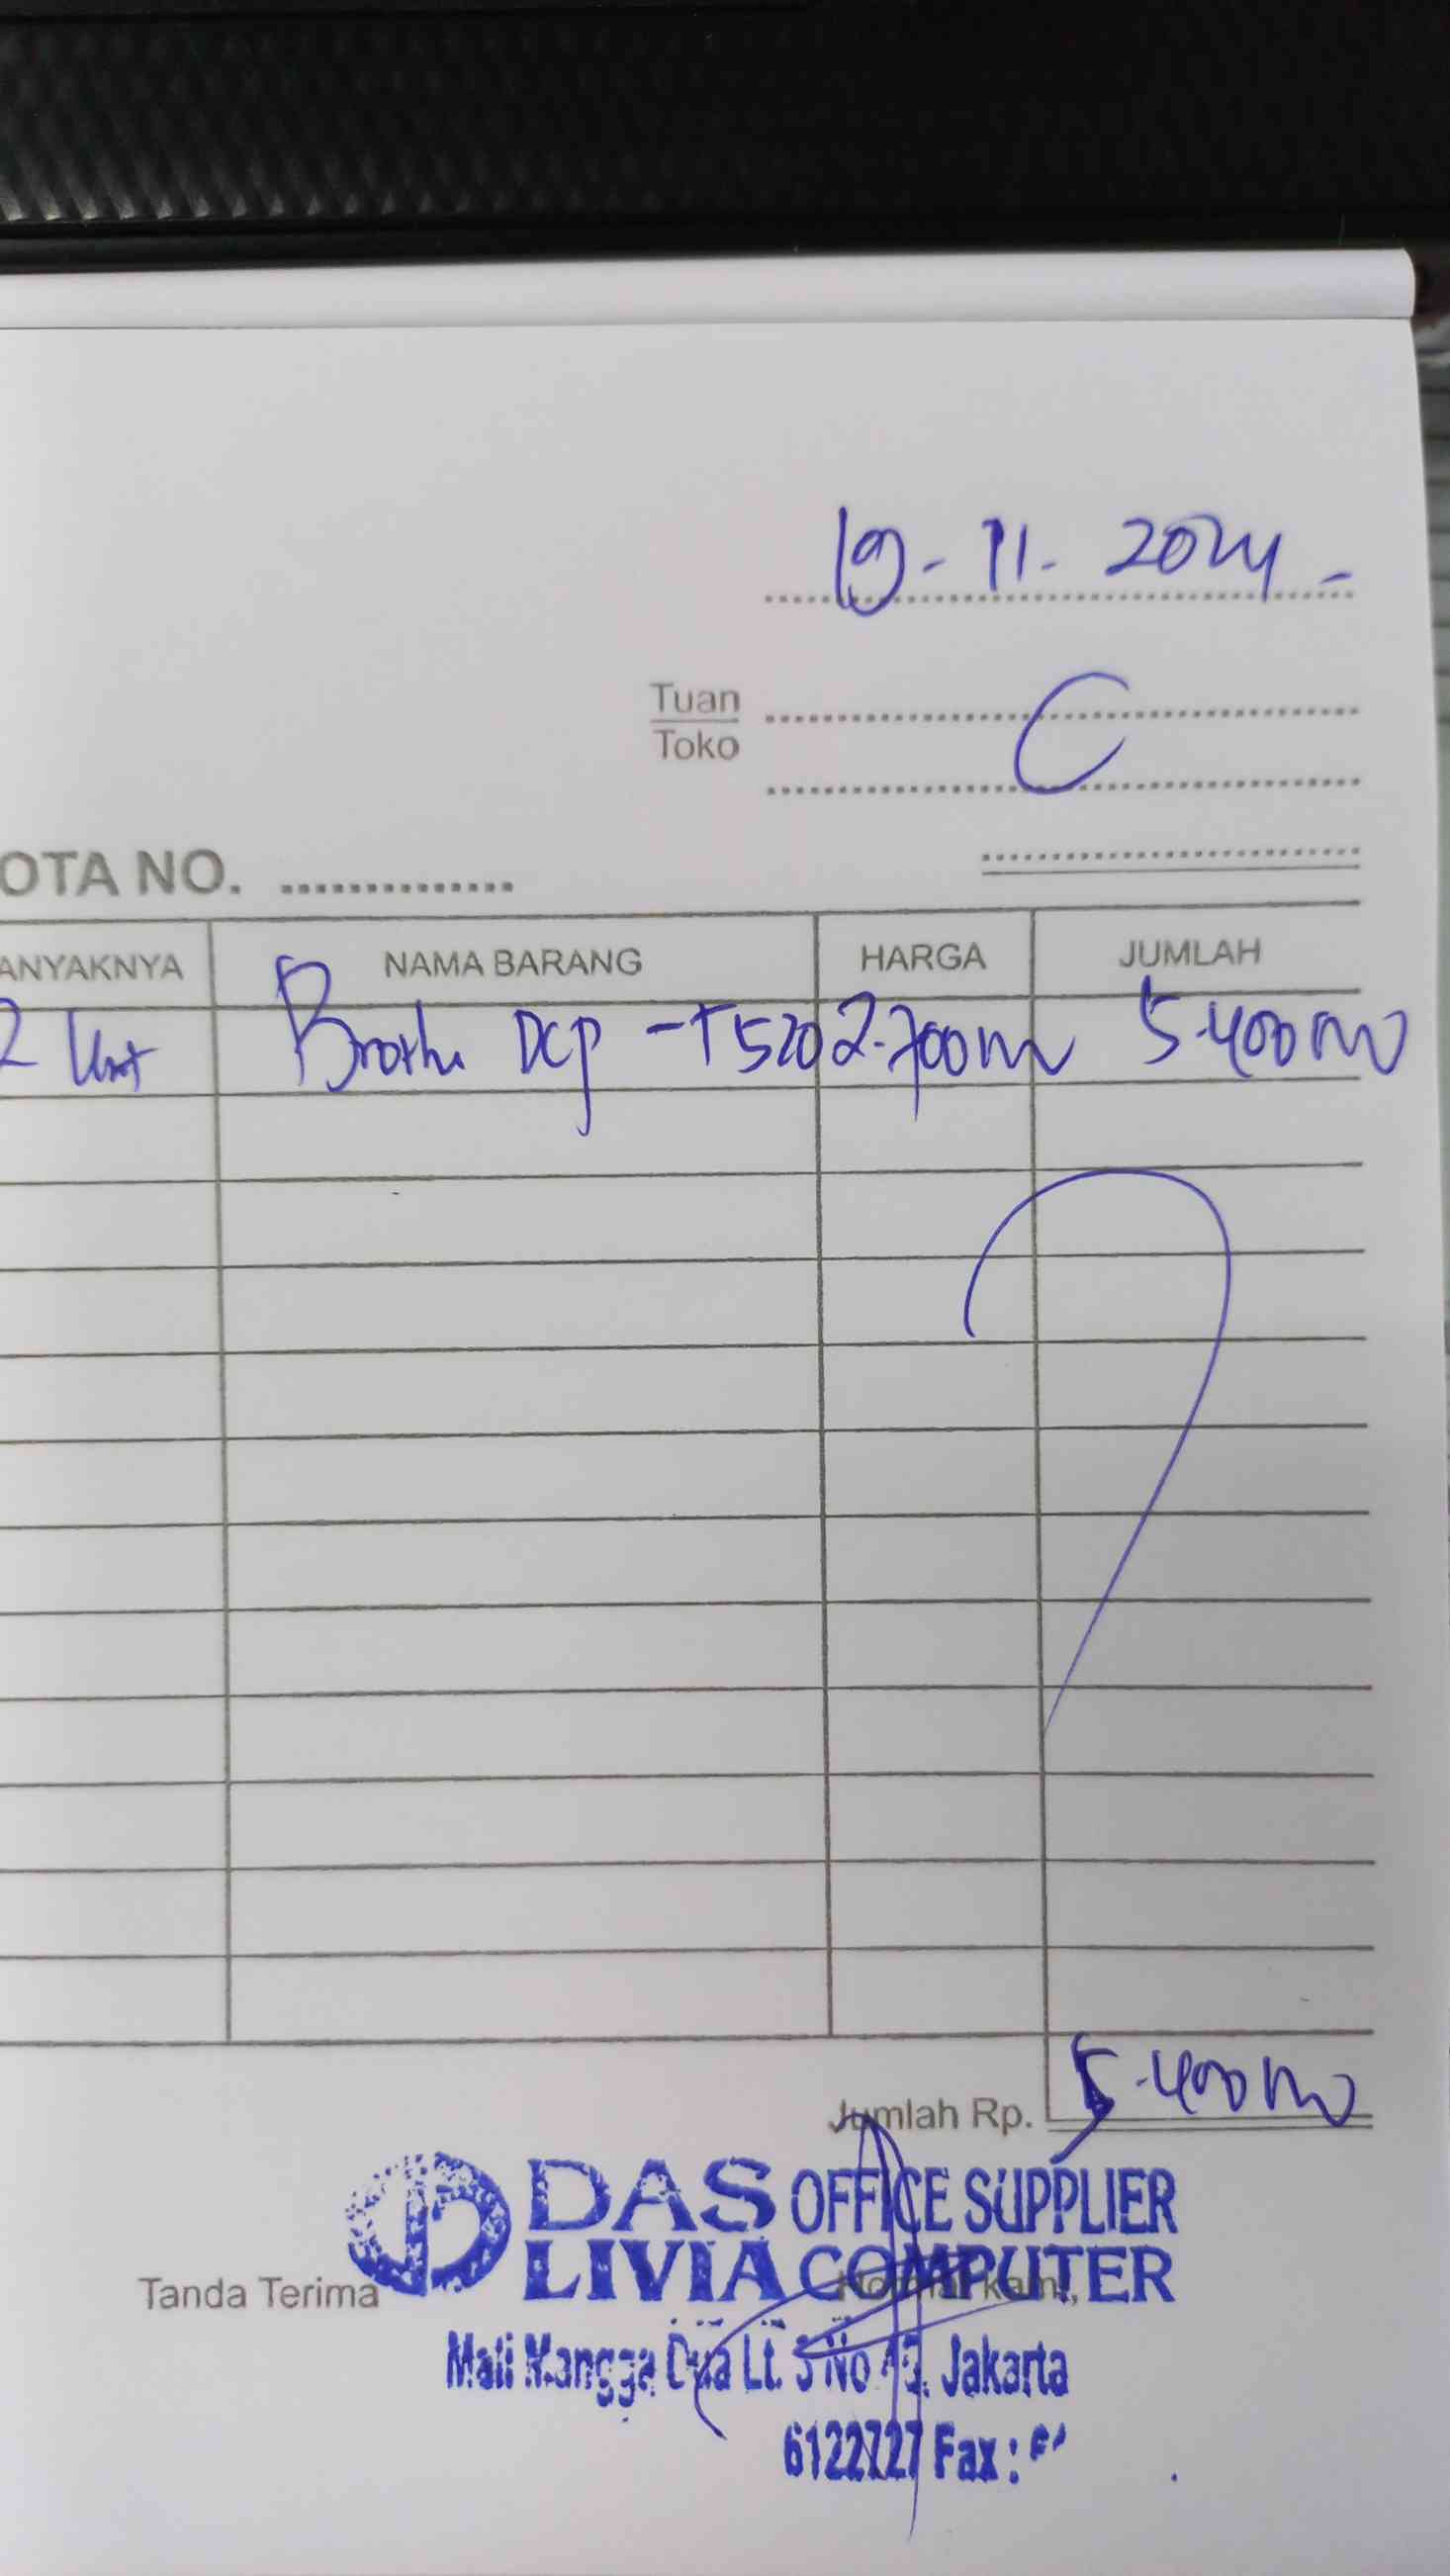 19-11-2024-
Tuan
Toko
C
OTA NO. ..............
ANYAKNYA NAMA BARANG HARGA JUMLAH
2 Unit Brother DCP-T520 2.700.000 5.400.000
Jumlah Rp. 5.400.000
DAS OFFICE SUPPLIER
LIVIA COMPUTER
Tanda Terima Hormat kami,
Mall Mangga Dua Lt. 3 No Jakarta
6122727 Fax :